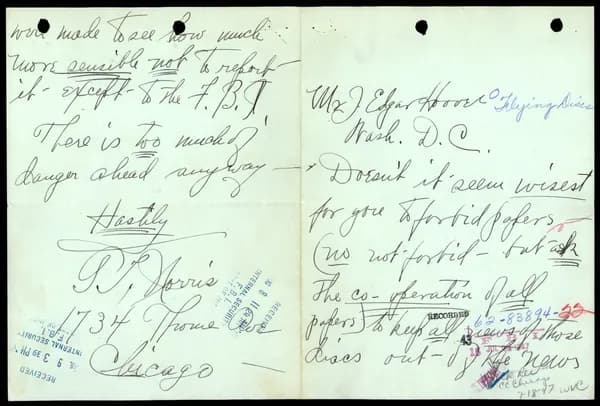 Mr J. Edgar Hoover
Flying Discs
Wash. D. C.
Doesn't it seem wisest
for you to forbid papers
(no not forbid - but ask
the co-operation of all
papers) to keep all news of those
discs out - of the news
RECORDED
62-83894-22
43
7-18-47 WVC
were made to see how much
more sensible not to report
it - except - to the F. B. I
There is too much of
danger ahead anyway -
Hastily
Norris
1734 Thome
Chicago
RECEIVED
INTERNAL SECURITY
F.B.I.
RECEIVED
9 3 39 PM
INTERNAL SECURITY
F.B.I.